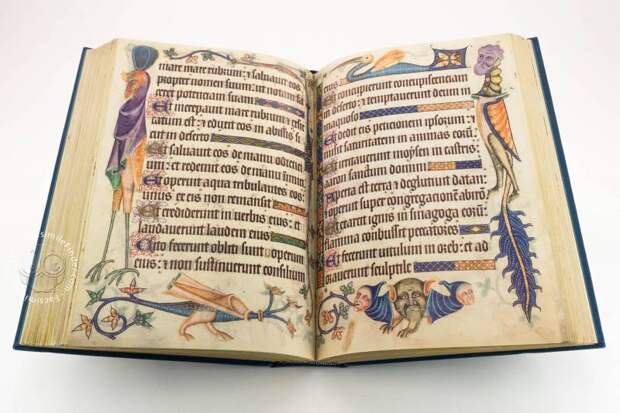 mare mare rubrum: & saluauit eos
propter nomen suum: ut notam fa
ceret potentiam suam
Et increpauit mare rubrum: & exic
catum est: et eduxit eos in abissis si
cut in deserto
Et saluauit eos de manu odientium:
et redemit eos de manu inimici
Et operuit aqua tribulantes eos:
unus ex eis non remansit
Et crediderunt in uerbis eius: et
laudauerunt laudem eius
Cito fecerunt obliti sunt operum
eius: & non sustinuerunt consilium
eius
Et concupierunt concupiscenciam
in deserto: & temptauerunt deum in
inaquoso
Et dedit eis peticionem ipsorum: et
saturitatem in animas eorum
Et irritauerunt moysen in castris:
aaron sanctum domini
Aperta est terra & deglutiuit datan:
et operuit super congregacionem abiron
Et exarsit ignis in sinagoga eorum:
flamma combussit peccatores
Et fecerunt uitulum in oreb: et ad
orauerunt sculptile